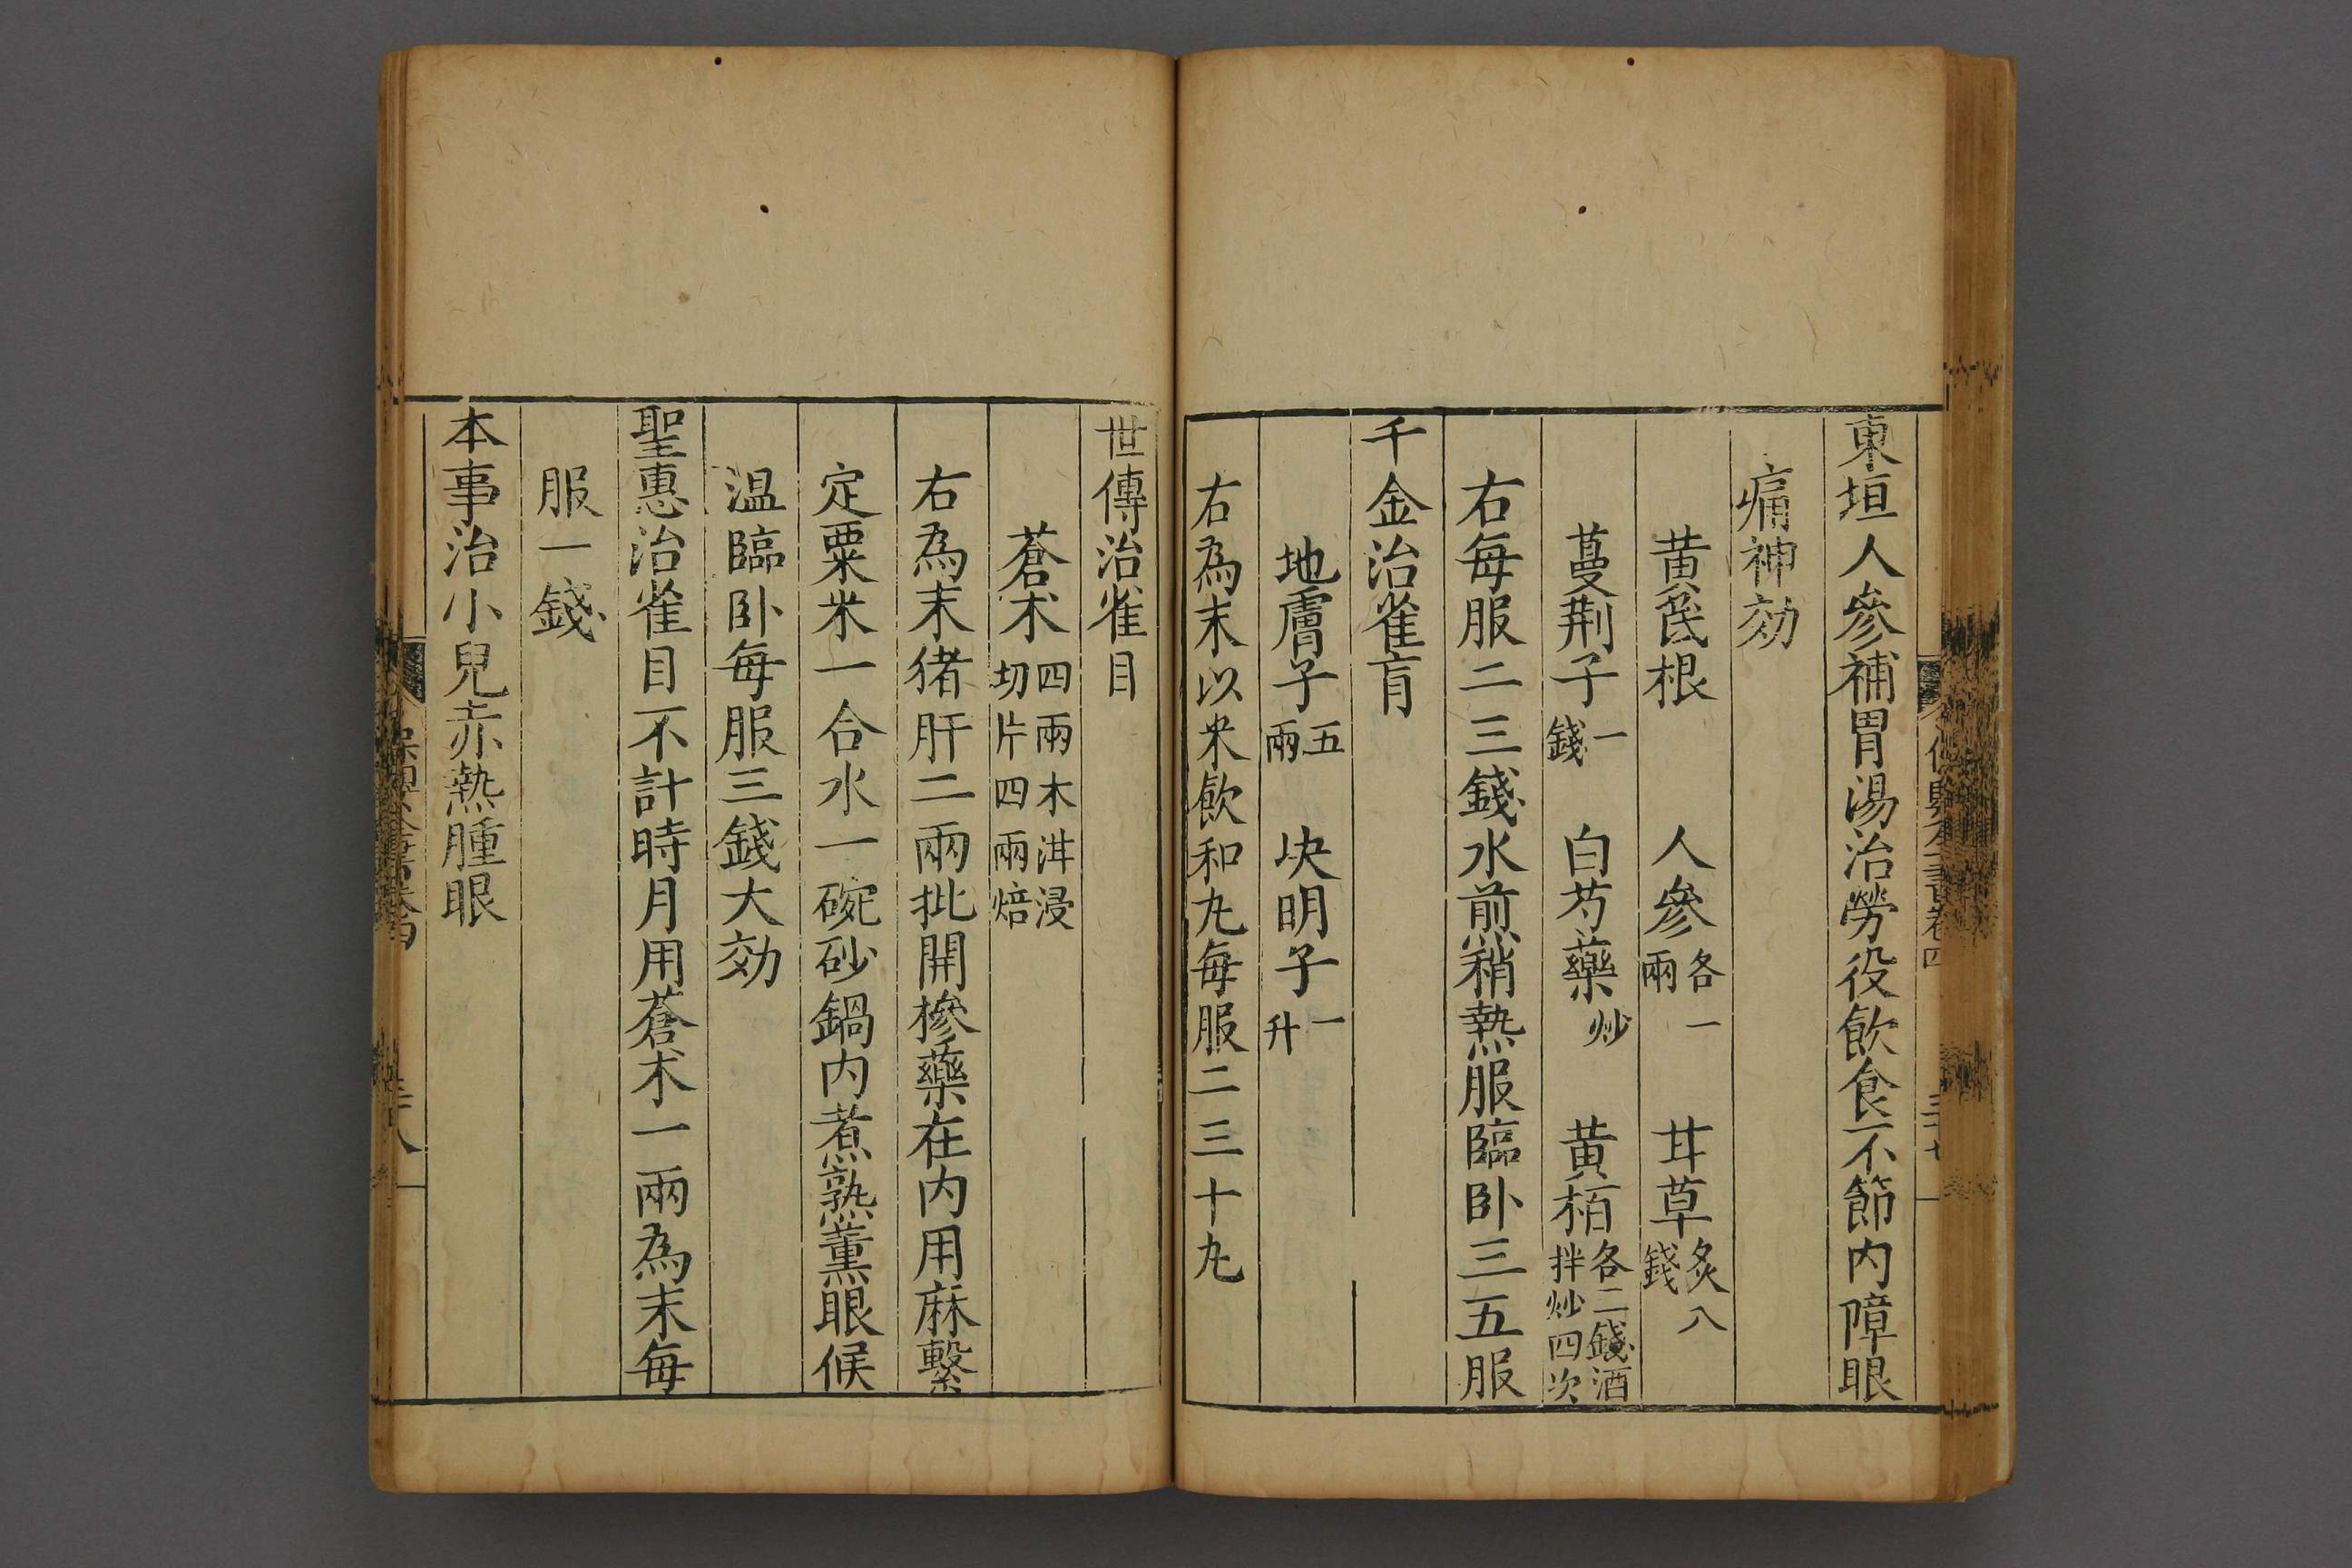 東垣人參補胃湯治勞役飲食不節内障眼
痛神効
黄芪根　人參各一兩　甘草炙八錢
蔓荆子一錢　白芍藥炒　黄栢各二錢酒拌炒四次
右每服二三錢水煎稍熱服臨卧三五服
千金治雀盲
地膚子五兩　决明子一升
右為末以米飲和丸每服二三十丸
世傳治雀目
蒼术四兩木泔浸切片四兩焙
右為末猪肝二兩批開摻藥在内用麻繫
定粟米一合水一碗砂鍋内煮熟薰眼候
温臨卧每服三錢大効
聖惠治雀目不計時月用蒼术一兩為末每
服一錢
本事治小兒赤熱腫眼